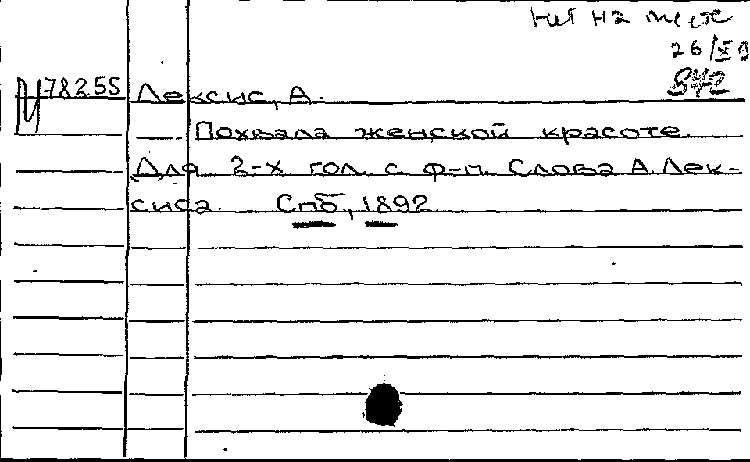 нет на месте
26/XI
И78255 Лексис, А.
Похвала женской красоте.
Для 2-х гол. с ф-п. Слова А. Лек-
сиса. Спб, 1892